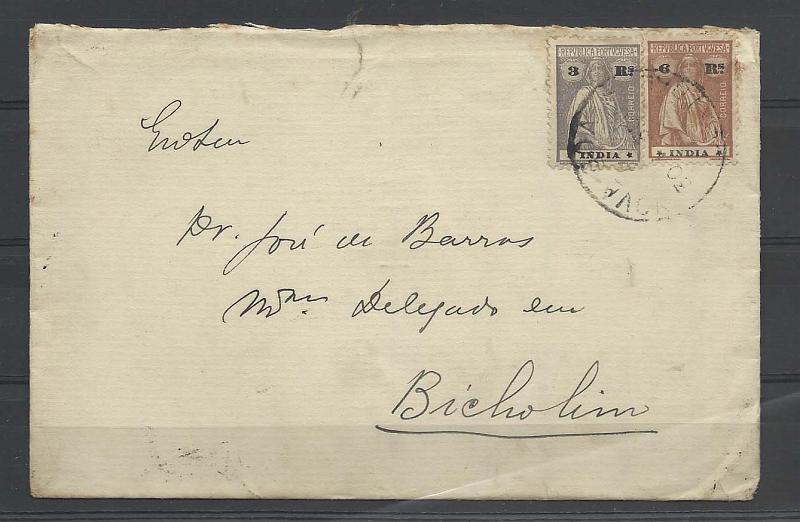 REPUBLICA PORTUGUESA
3 Rs
CORREIO
INDIA
REPUBLICA PORTUGUESA
6 Rs
CORREIO
INDIA
NOVA GOA
Dr. José de Barros
Delegado em
Bicholim